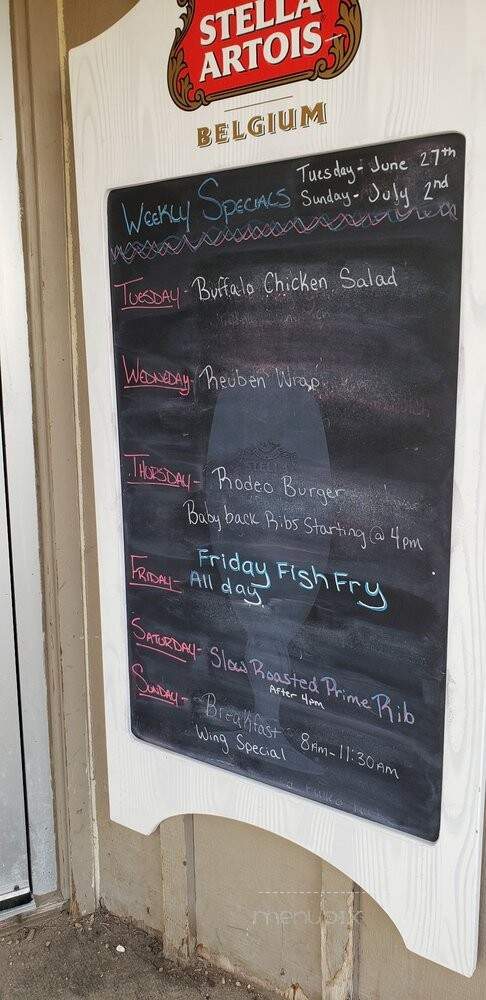 STELLA
ARTOIS
BELGIUM
WEEKLY SPECIALS
Tuesday - June 27th
Sunday - July 2nd
TUESDAY - Buffalo Chicken Salad
WEDNESDAY - Reuben Wrap
THURSDAY - Rodeo Burger
Baby back Ribs Starting @ 4pm
STELLA
FRIDAY - Friday Fish Fry
All day
SATURDAY - Slow Roasted Prime Rib
After 4pm
SUNDAY - Breakfast 8AM-11:30AM
Wing Special
menupix